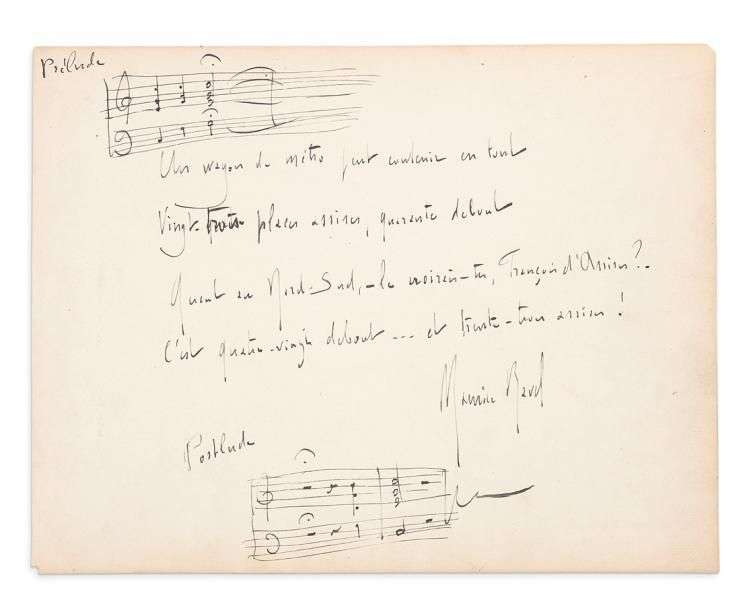 Prélude
Un wagon de métro peut contenir en tout
Vingt-trois places assises, quarante debout
Quant au Nord-Sud, - le croirais-tu, François d'Assises ? -
C'est quatre-vingt debout --- et trente-trois assises !
Maurice Ravel
Postlude